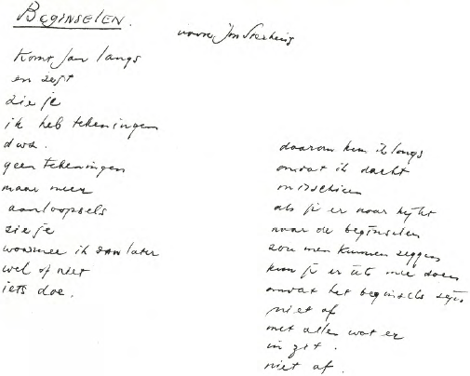 BEGINSELEN.
voor Jan Sierhuis
Komt Jan langs
en zegt
zie je
ik heb tekeningen
dus.
geen tekeningen
maar meer
aanloopsels
zie je
waarmee ik dan later
wel of niet
iets doe.
daarom kom ik langs
omdat ik dacht
misschien
als je er naar kijkt
naar de beginselen
zou men kunnen zeggen
kun je er iets mee doen
omdat het beginsels zijn
niet af
met alles wat er
in zit.
niet af.